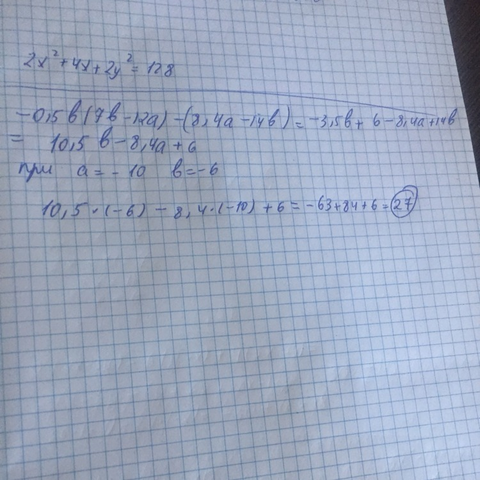 2x² + 4x + 2y² = 128
-0,5в(7в - 12a) - (8,4a - 14в) = -3,5в + 6 - 8,4a + 14в
= 10,5 в - 8,4a + 6
при a = - 10 в = -6
10,5 · (-6) - 8,4 · (-10) + 6 = -63 + 84 + 6 = 27